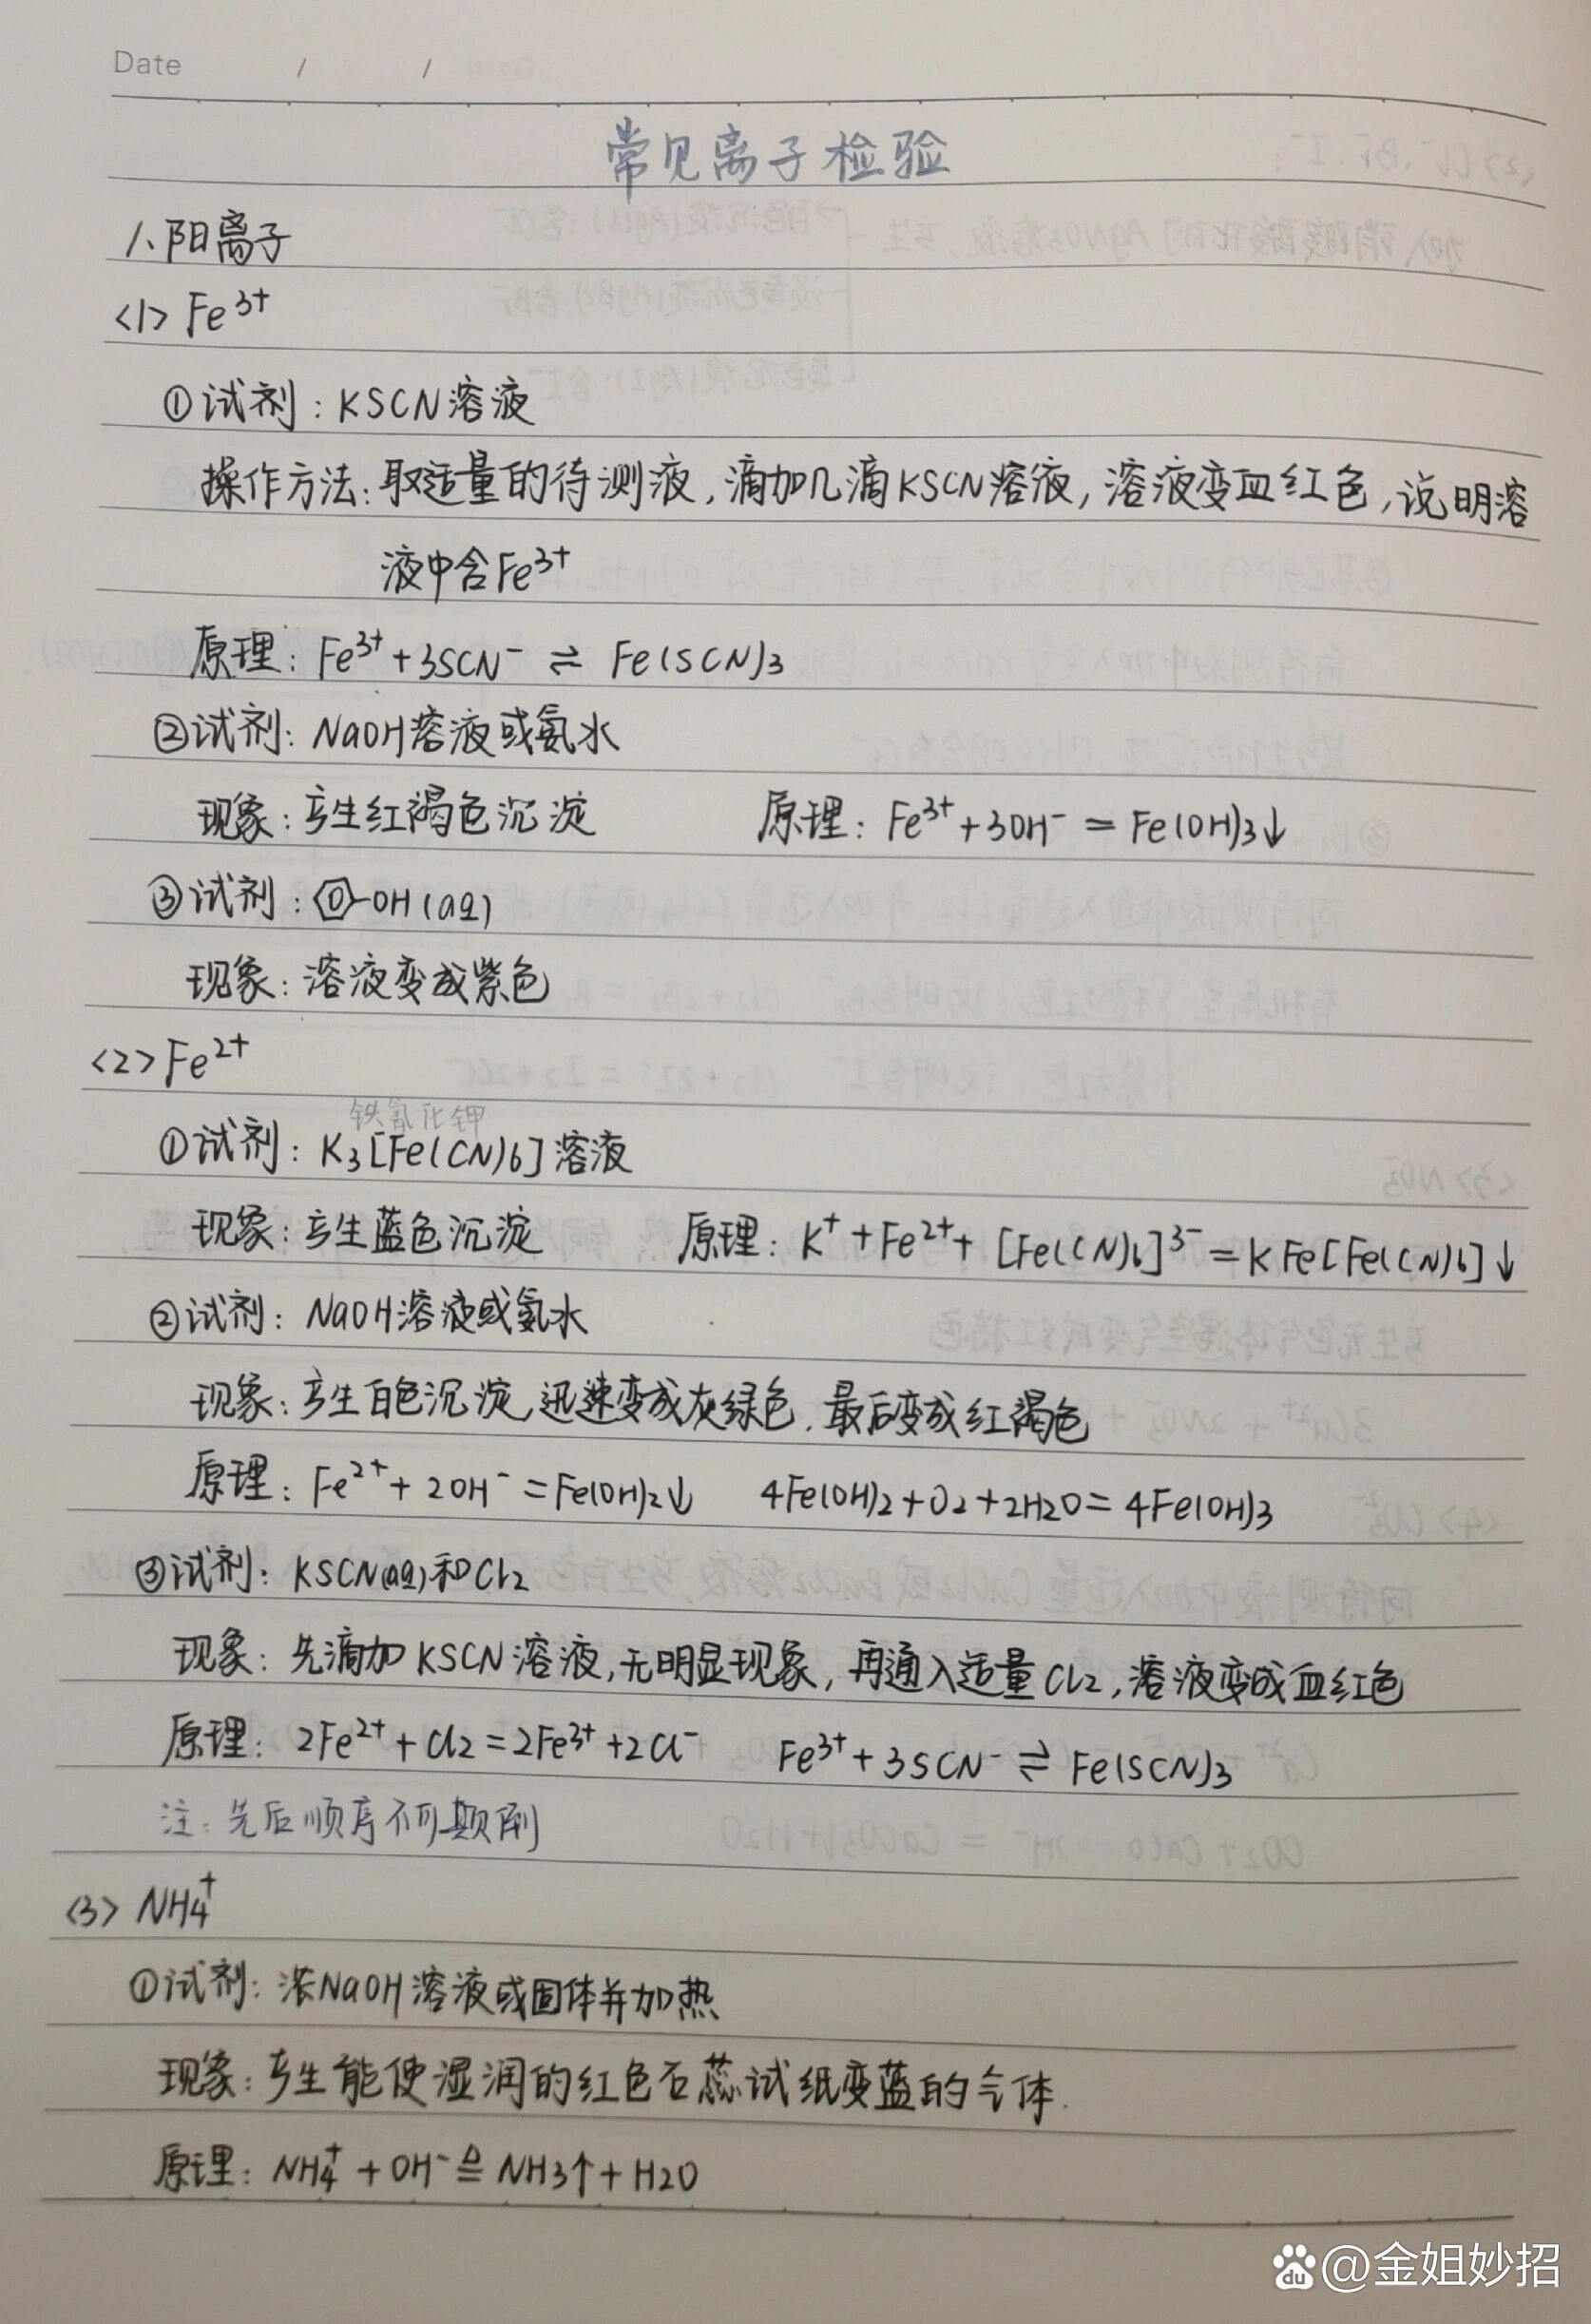 Date / /
常见离子检验
1、阳离子
<1> Fe³⁺
①试剂：KSCN溶液
操作方法：取适量的待测液，滴加几滴KSCN溶液，溶液变血红色，说明溶
液中含Fe³⁺
原理：Fe³⁺+3SCN⁻ ⇌ Fe(SCN)₃
②试剂：NaOH溶液或氨水
现象：产生红褐色沉淀 原理：Fe³⁺+3OH⁻ = Fe(OH)₃↓
③试剂：⌬-OH(aq)
现象：溶液变成紫色
<2> Fe²⁺
铁氰化钾
①试剂：K₃[Fe(CN)₆]溶液
现象：产生蓝色沉淀 原理：K⁺+Fe²⁺+[Fe(CN)₆]³⁻=KFe[Fe(CN)₆]↓
②试剂：NaOH溶液或氨水
现象：产生白色沉淀，迅速变成灰绿色，最后变成红褐色
原理：Fe²⁺+2OH⁻=Fe(OH)₂↓ 4Fe(OH)₂+O₂+2H₂O=4Fe(OH)₃
③试剂：KSCN(aq)和Cl₂
现象：先滴加KSCN溶液，无明显现象，再通入适量Cl₂，溶液变成血红色
原理：2Fe²⁺+Cl₂=2Fe³⁺+2Cl⁻ Fe³⁺+3SCN⁻ ⇌ Fe(SCN)₃
注：先后顺序不可颠倒
<3> NH₄⁺
①试剂：浓NaOH溶液或固体并加热
现象：产生能使湿润的红色石蕊试纸变蓝的气体.
原理：NH₄⁺+OH⁻ ≜ NH₃↑+H₂O
du @金姐妙招